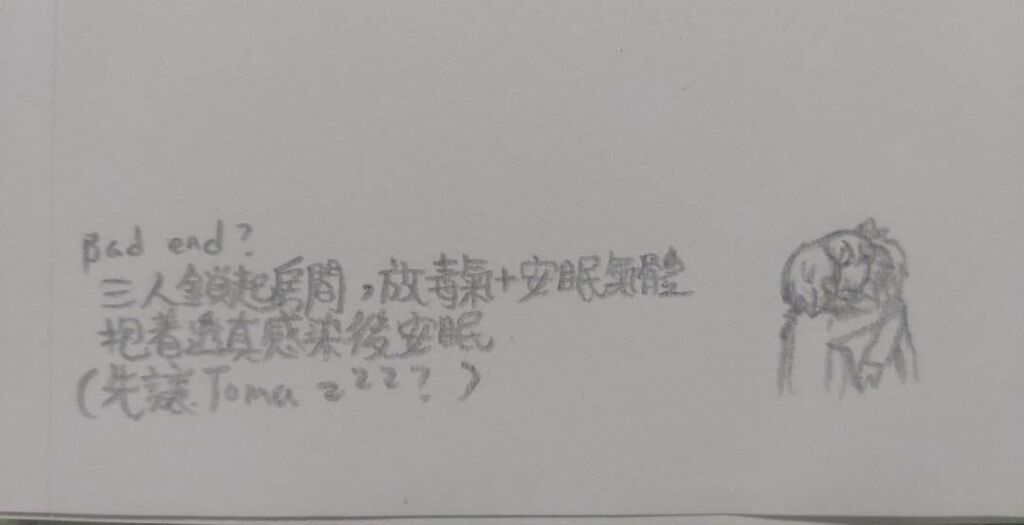 Bad end?
三人鎖起房間,放毒氣+安眠氣體
抱着透真感染後安眠
(先讓Toma zzz?)